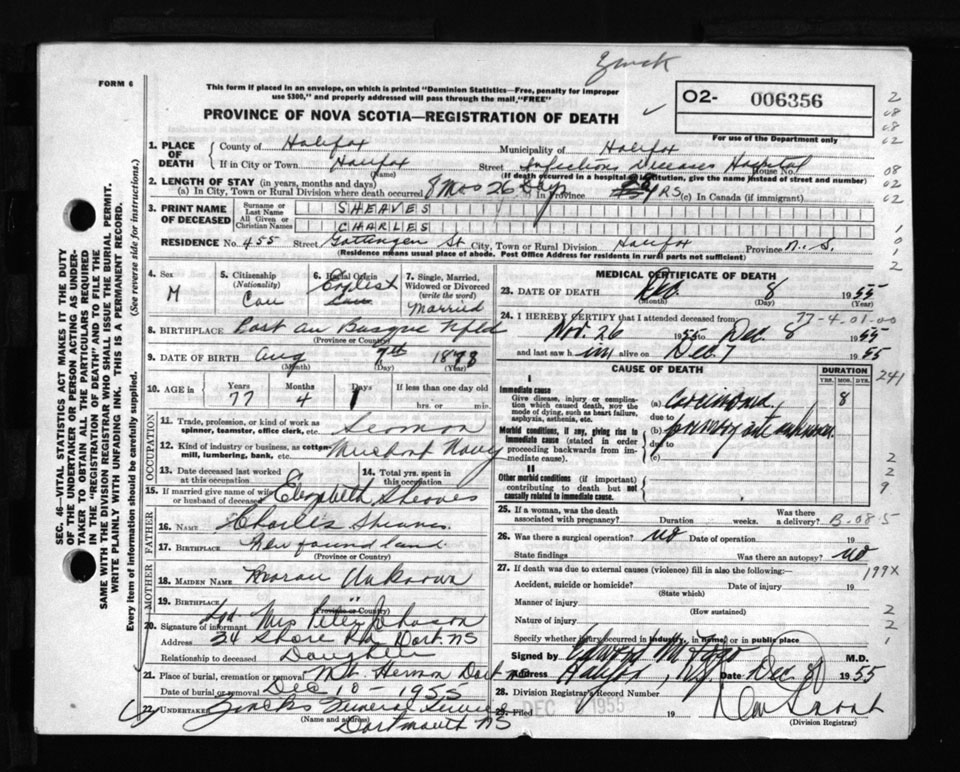 Zinck
FORM 6
This form if placed in an envelope, on which is printed "Dominion Statistics—Free, penalty for improper
use $300," and properly addressed will pass through the mail, "FREE"
PROVINCE OF NOVA SCOTIA—REGISTRATION OF DEATH
02- 006356
For use of the Department only
SEC. 46—VITAL STATISTICS ACT MAKES IT THE DUTY
OF THE UNDERTAKER OR PERSON ACTING AS UNDER-
TAKER TO OBTAIN ALL THE PARTICULARS REQUIRED
IN THE "REGISTRATION OF DEATH" AND TO FILE THE
SAME WITH THE DIVISION REGISTRAR WHO SHALL ISSUE THE BURIAL PERMIT.
WRITE PLAINLY WITH UNFADING INK. THIS IS A PERMANENT RECORD.
Every item of information should be carefully supplied. (See reverse side for instructions.)
1. PLACE OF DEATH County of Halifax Municipality of Halifax
If in City or Town Halifax (Name) Street Infectious Diseases Hospital House No.
(If death occurred in a hospital or institution, give the name instead of street and number)
2. LENGTH OF STAY (in years, months and days)
(a) In City, Town or Rural Division where death occurred 8 Mos 26 Days In Province YRS (c) In Canada (if immigrant)
3. PRINT NAME OF DECEASED Surname or Last Name SHEAVES
All Given or Christian Names CHARLES
RESIDENCE No. 455 Street Gottingen St City, Town or Rural Division Halifax Province N.S.
(Residence means usual place of abode. Post Office Address for residents in rural parts not sufficient)
4. Sex M
5. Citizenship (Nationality) Can
6. Racial Origin English
7. Single, Married, Widowed or Divorced (write the word) Married
8. BIRTHPLACE Port au Basque Nfld
(Province or Country)
9. DATE OF BIRTH Aug 7th 1878
(Month) (Day) (Year)
10. AGE in Years 77 Months 4 Days 1 If less than one day old hrs. or min.
OCCUPATION
11. Trade, profession, or kind of work as spinner, teamster, office clerk, etc. Seaman
12. Kind of industry or business, as cotton-mill, lumbering, bank, etc. Merchant Navy
13. Date deceased last worked at this occupation
14. Total yrs. spent in this occupation
15. If married give name of wife or husband of deceased Elizabeth Sheaves
FATHER
16. NAME Charles Sheaves
17. BIRTHPLACE Newfoundland
(Province or Country)
MOTHER
18. MAIDEN NAME Unknown
19. BIRTHPLACE "
(Province or Country)
20. Signature of informant Sgd Mrs Peter Johnson
Address 34 Shore Rd Dart. NS
Relationship to deceased Daughter
21. Place of burial, cremation or removal Mt. Hermon Dart NS
Date of burial or removal Dec 10 - 1955
22. UNDERTAKER Zinck's Funeral Service
(Name and address) Dartmouth NS
MEDICAL CERTIFICATE OF DEATH
23. DATE OF DEATH Dec. 8 1955
(Month) (Day) (Year)
77-4.01-00
24. I HEREBY CERTIFY that I attended deceased from
Nov. 26 1955 to Dec. 8 1955
and last saw him alive on Dec. 7 1955
CAUSE OF DEATH
DURATION
YRS. MOS. DYS.
241
I
Immediate cause
Give disease, injury or complication which caused death, NOT the mode of dying, such as heart failure, asphyxia, asthenia, etc.
(a) Carcinoma 8
due to
Morbid conditions, if any, giving rise to immediate cause (stated in order proceeding backwards from immediate cause).
(b) primary site unknown
due to
(c)
II
Other morbid conditions (if important) contributing to death but not causally related to immediate cause.
25. If a woman, was the death associated with pregnancy? Duration weeks. Was there a delivery?
B-085
26. Was there a surgical operation? no Date of operation 19
State findings Was there an autopsy? no
27. If death was due to external causes (violence) fill in also the following:—
199X
Accident, suicide or homicide? Date of injury 19
(State which)
Manner of injury
(How sustained)
Nature of injury
Specify whether injury occurred in industry, in home, or in public place
Signed by Edward M. M.D.
Address Halifax, NS Date Dec. 8 1955
28. Division Registrar's Record Number
29. Filed DEC 1955 19
(Division Registrar)